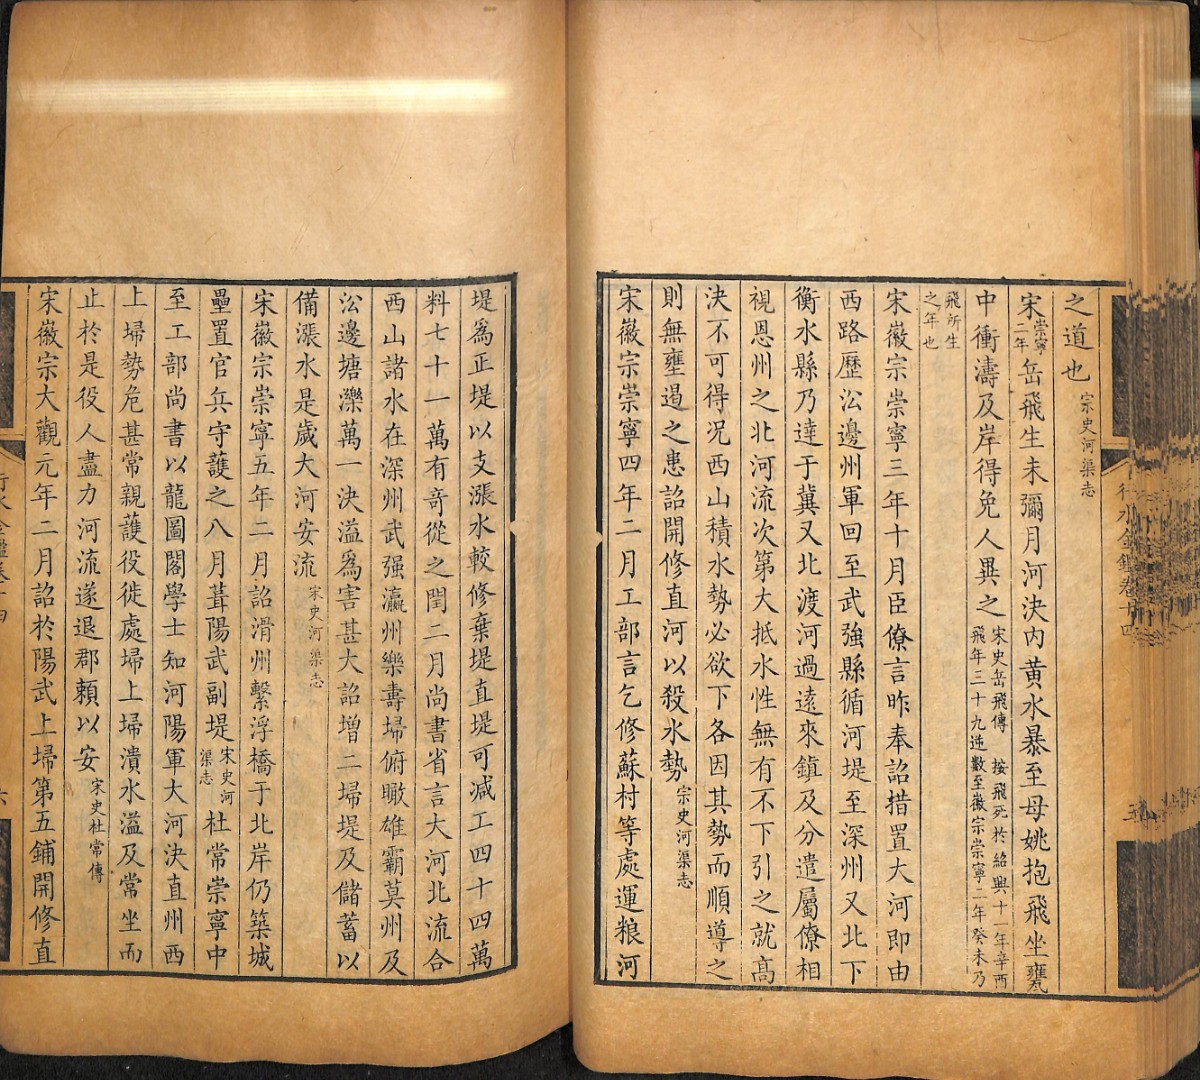 之道也宋史河渠志
宋崇寧二年岳飛生未彌月河決內黄水暴至母姚抱飛坐甕
中衝濤及岸得免人異之宋史岳飛傳 按飛死於紹興十一年辛酉飛年三十九逆數至徽宗崇寧二年癸未乃
飛所生之年也
宋徽宗崇寧三年十月臣僚言昨奉詔措置大河即由
西路歷沿邊州軍回至武強縣循河堤至深州又北下
衡水縣乃達于冀又北渡河過遠來鎮及分遣屬僚相
視恩州之北河流次第大抵水性無有不下引之就高
決不可得况西山積水勢必欲下各因其勢而順導之
則無壅遏之患詔開修直河以殺水勢宋史河渠志
宋徽宗崇寧四年二月工部言乞修蘇村等處運粮河
堤爲正堤以支漲水較修棄堤直堤可减工四十四萬
料七十一萬有奇從之閏二月尚書省言大河北流合
西山諸水在深州武强瀛州樂壽埽俯瞰雄霸莫州及
沿邊塘濼萬一決溢爲害甚大詔增二埽堤及儲蓄以
備漲水是歲大河安流宋史河渠志
宋徽宗崇寧五年二月詔滑州繫浮橋于北岸仍築城
壘置官兵守護之八月葺陽武副堤宋史河渠志杜常崇寧中
至工部尚書以龍圖閣學士知河陽軍大河決直州西
上埽勢危甚常親護役徙處埽上埽潰水溢及常坐而
止於是役人盡力河流遂退郡賴以安宋史杜常傳
宋徽宗大觀元年二月詔於陽武上埽第五鋪開修直
行水金鑑卷十四
六